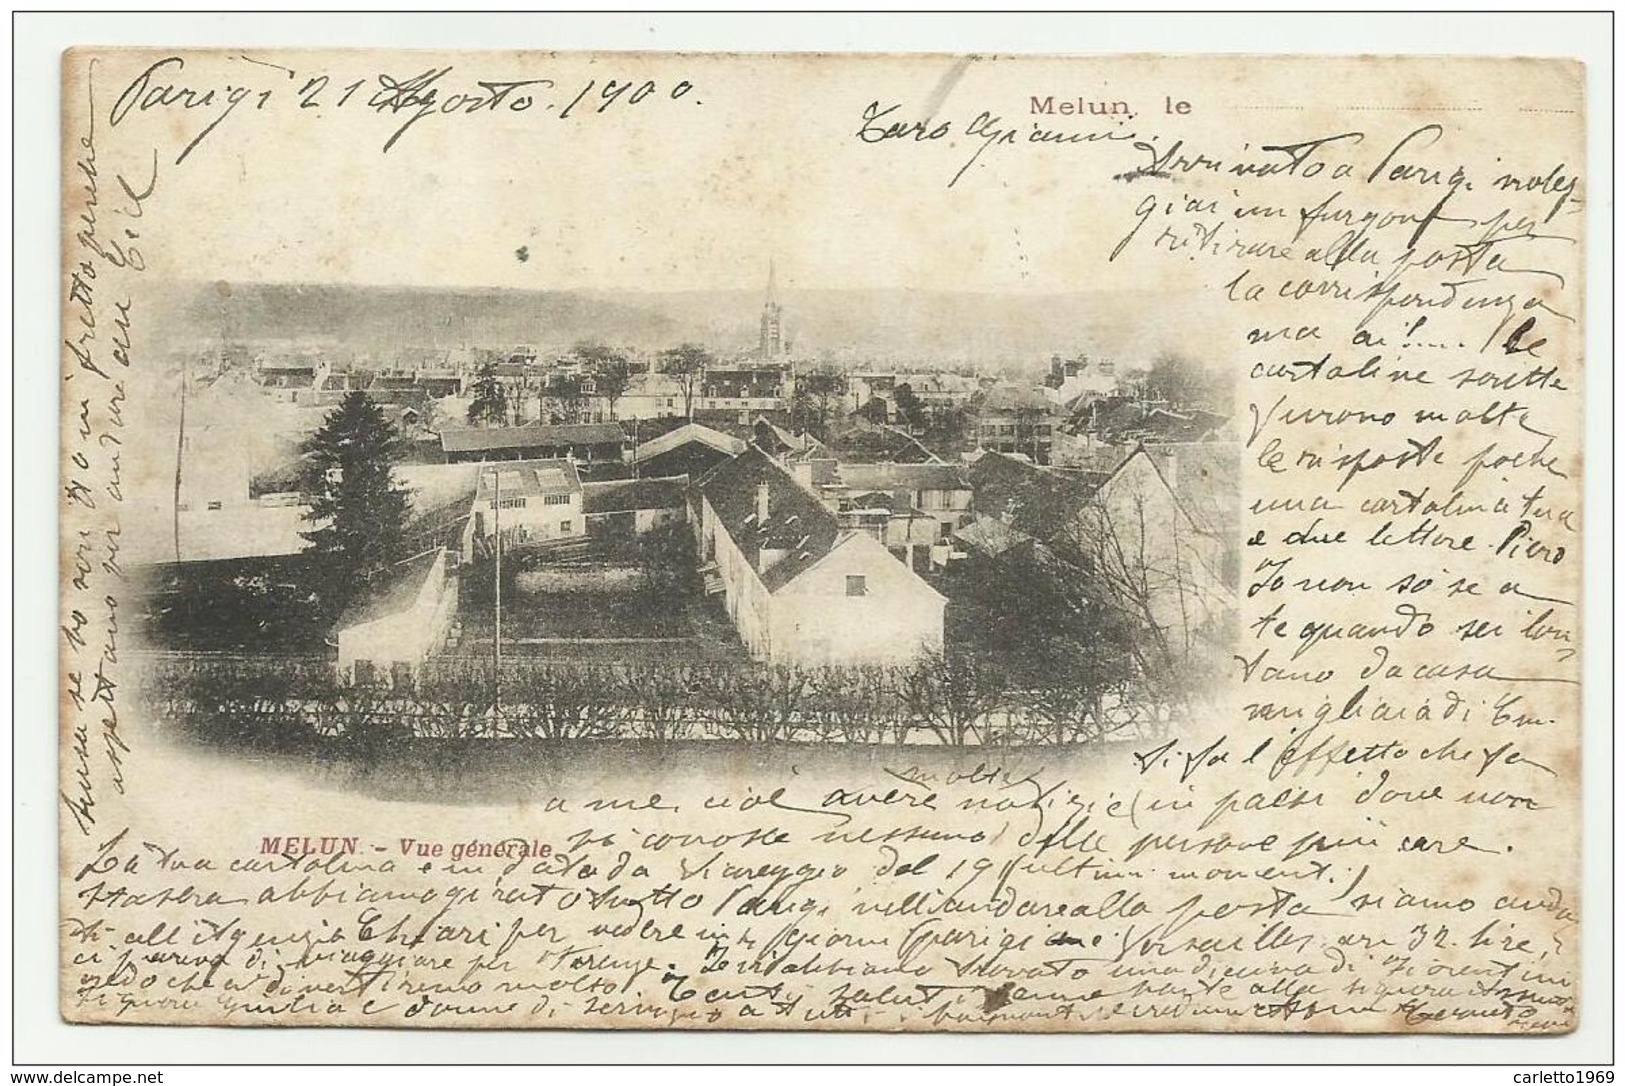 Parigi 21 Agosto. 1900.
Melun, le
Caro Gianni.
Arrivato a Parigi noleg-
giai un furgone per
ritirare alla posta
la corrispondenza
ma ai!.... le
cartoline scritte
furono molte
le risposte poche
una cartolina tua
e due lettere. Piero
Io non so se a
te quando sei lon-
tano da casa
migliaia di Cm.
ti fa l'effetto che fa
a me, cioè avere molte notizie (in paesi dove non
si conosce nessuno) delle persone più care.
MELUN. - Vue générale
La tua cartolina è in data da Viareggio del 19 (ultimi momenti)
Stasera abbiamo girato tutto Parigi nell'andare alla posta siamo anda
ti all'Agenzia Chiari per vedere in giorni (Parigi Versailles 32 lire,
ci pareva di viaggiare per Firenze. Ieri abbiamo trovato una di Fiorentini
credo che ci divertiremo molto. Tanti saluti alla signora
signora Giulia e a tutti
Scusa se ho scritto in fretta perchè
aspettano per andare au Ciel
carletto1969